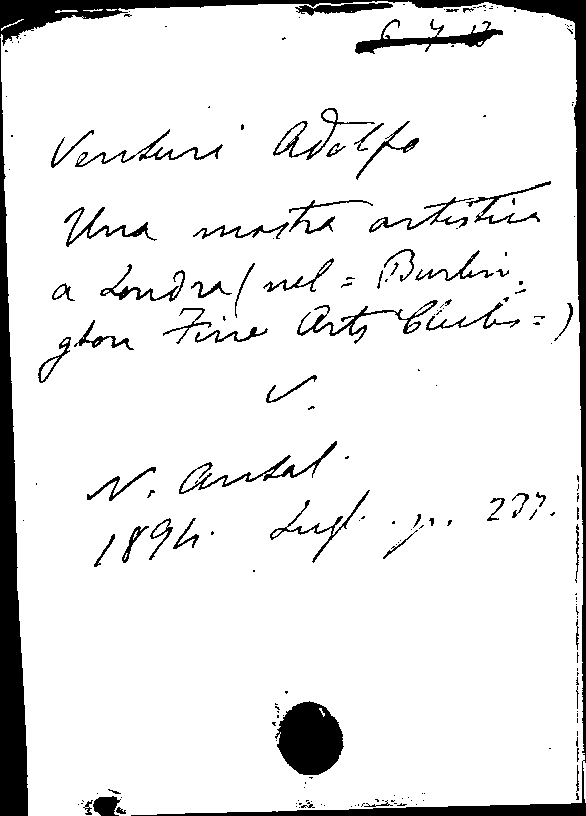 Venturi Adolfo
Una mostra artistica
a Londra (nel = Burlin=
gton Fine Arts Clubs=)
V.
N. Antol.
1894. Lugl. p. 237.